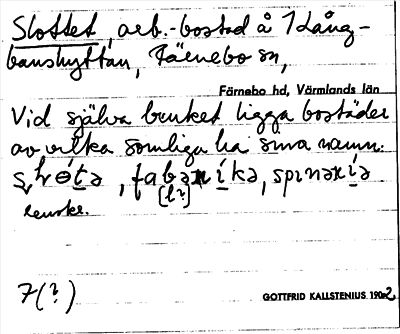 Slottet, arb.-bostad å Lång-
banshyttan, Färnebo sn,
Färnebo hd, Värmlands län
Vid själva bruket ligga bostäder
av vilka somliga ha sina namn:
fabəníkə, spinəríə
[l?]
7(?)
GOTTFRID KALLSTENIUS 1902